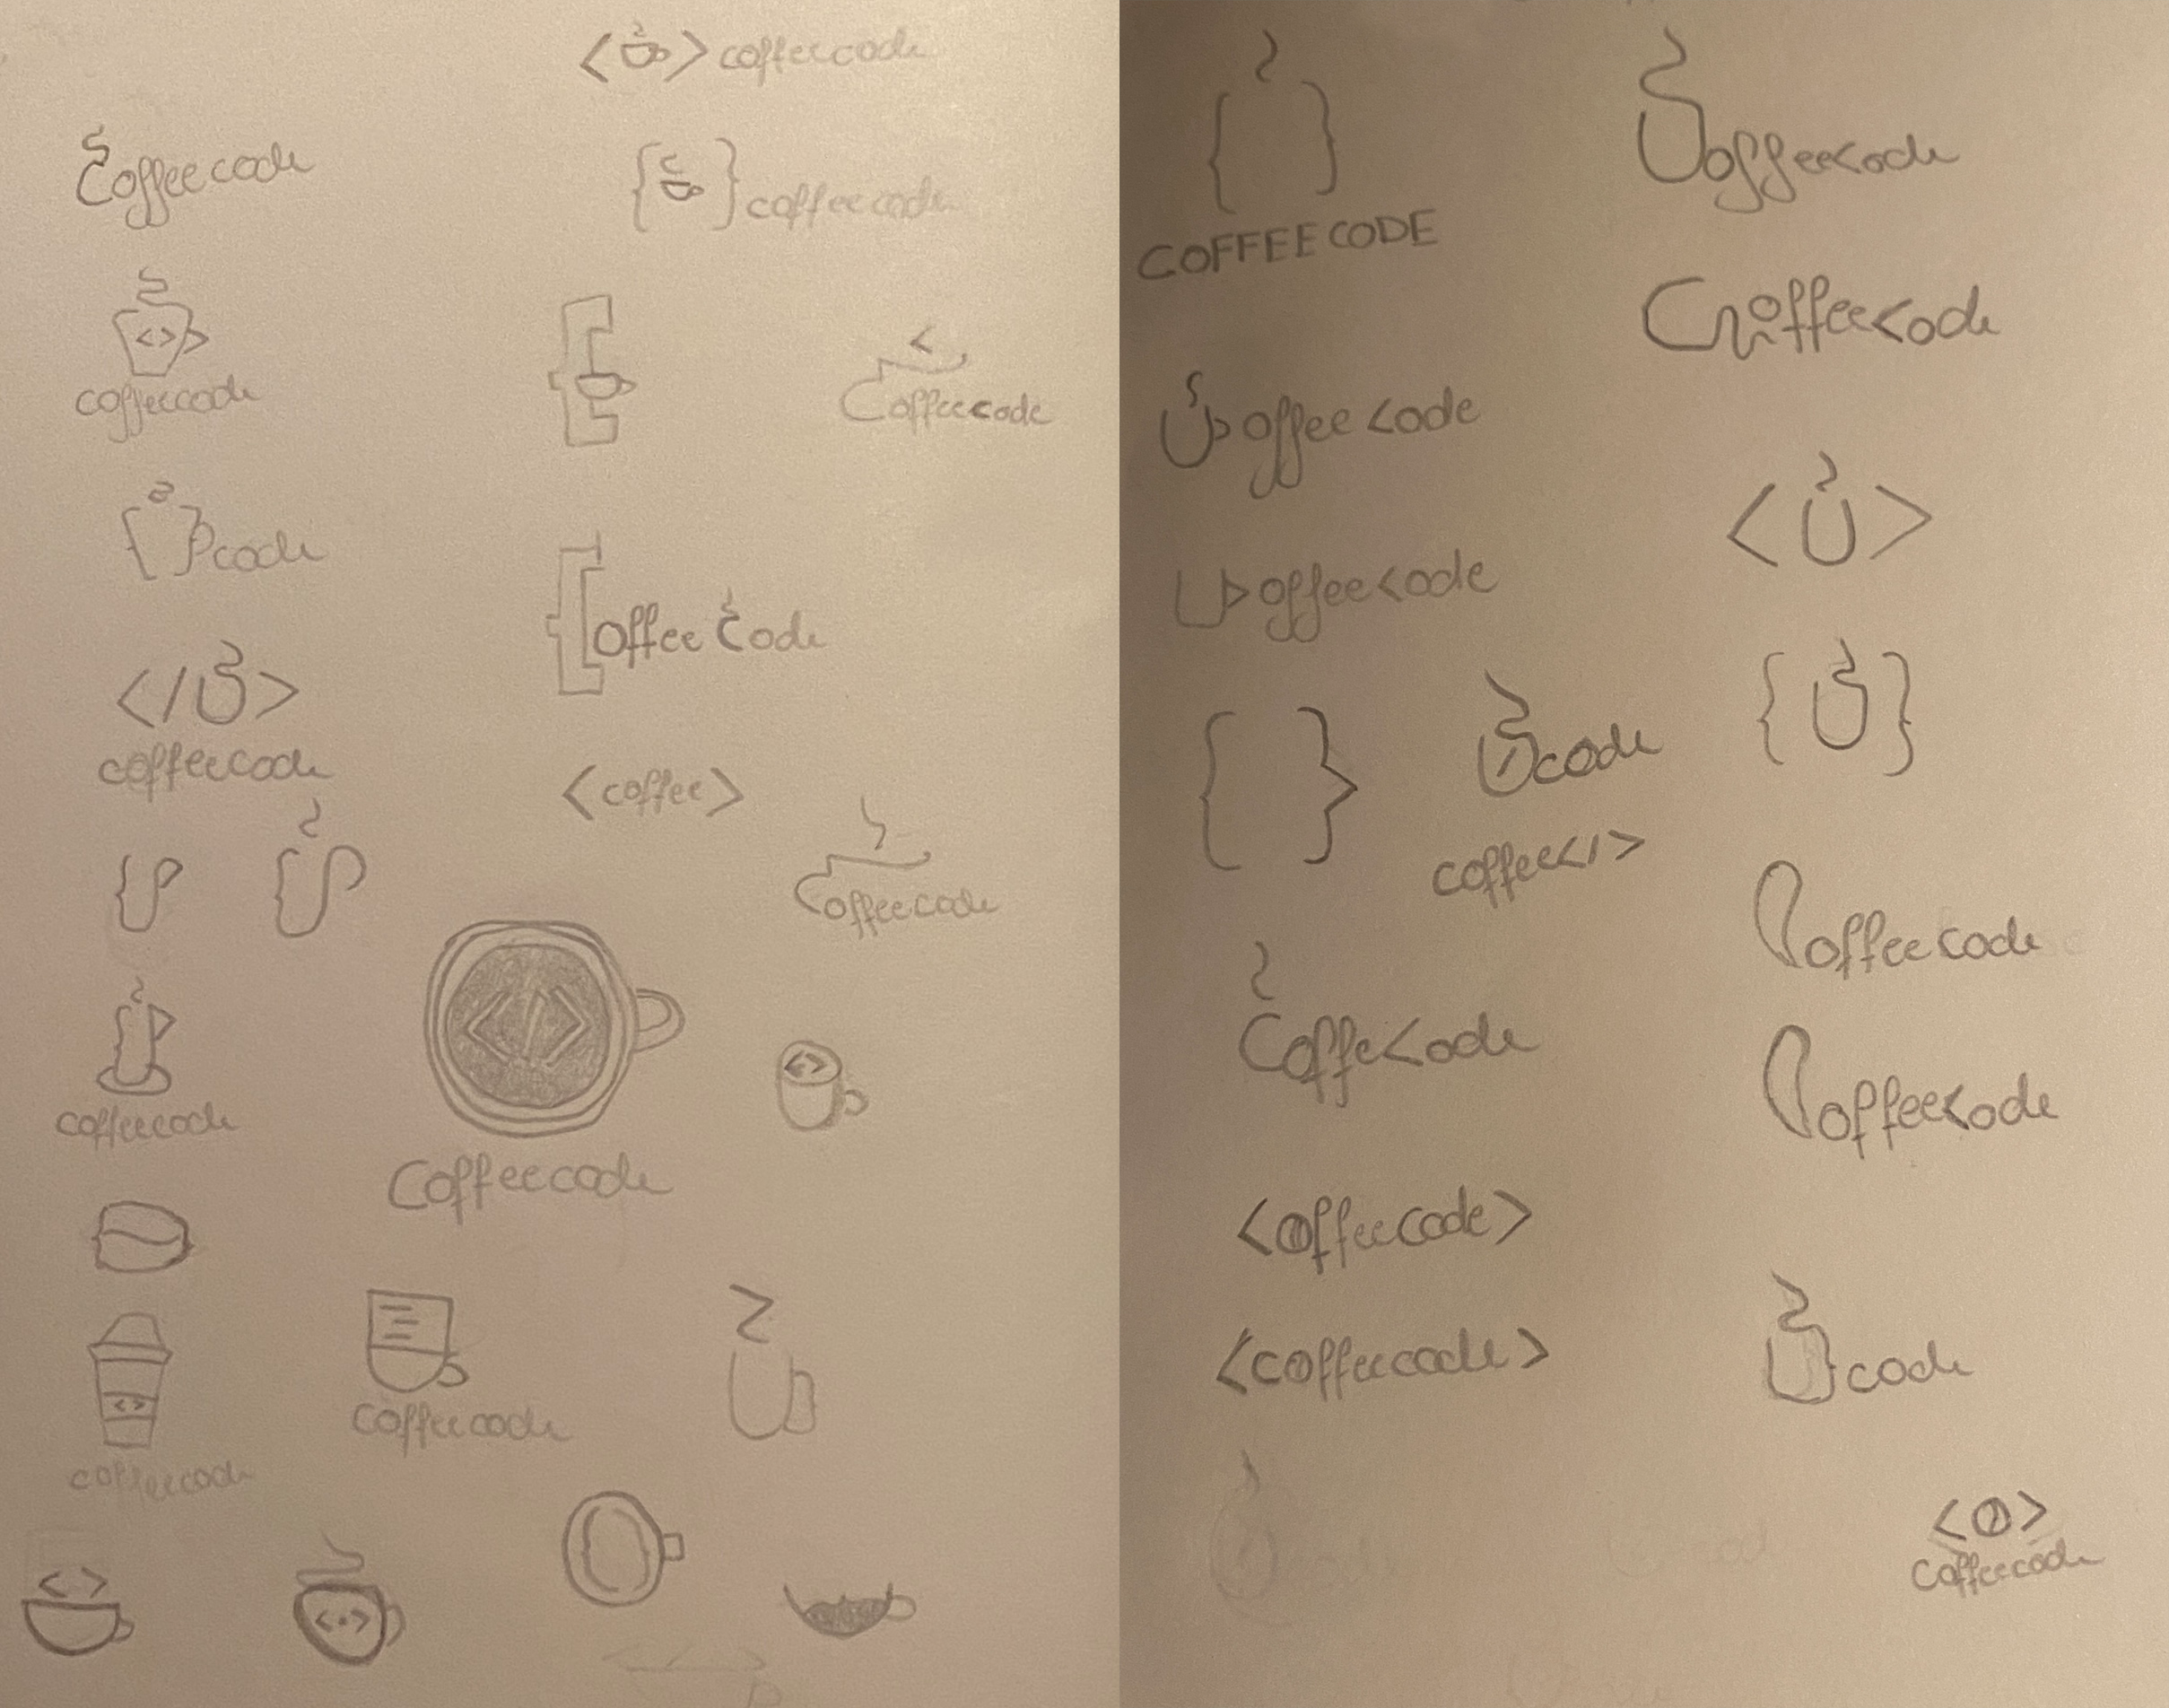 < > coffeecode
Coffeecode
{ } coffeecode
< >
coffeecode
<
Coffeecode
{ } code
{offee Code
</ >
coffeecode
<coffee>
Coffeecode
</>
Coffeecode
< >
coffeecode
< >
coffeecode
coffeecode
< >
< · >
{ }
COFFEECODE
offee<ode
Coffee<ode
offee <ode
< >
offee<ode
{ }
{ }
code
coffee</>
offeecode
Coffe<ode
offee<ode
<offeecode>
<coffeecode>
code
< >
Coffeecode